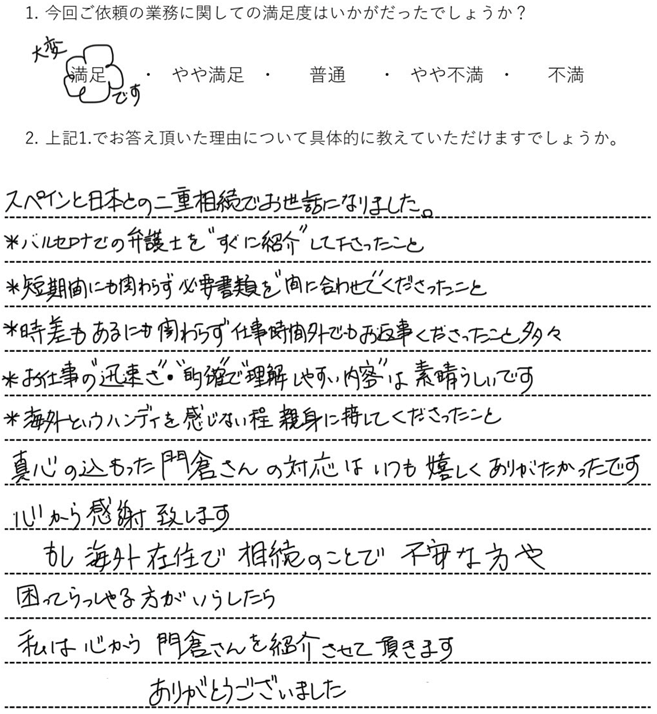 1. 今回ご依頼の業務に関しての満足度はいかがだったでしょうか？
大変
満足 ・ やや満足 ・ 普通 ・ やや不満 ・ 不満
です
2. 上記1.でお答え頂いた理由について具体的に教えていただけますでしょうか。
スペインと日本との二重相続でお世話になりました。
*バルセロナでの弁護士を"すぐに紹介"して下さったこと
*短期間にも関わらず必要書類を"間に合わせて"くださったこと
*時差もあるにも関わらず仕事時間外でもお返事くださったこと多々
*お仕事の"迅速さ"・"的確で理解しやすい内容"は素晴らしいです
*海外というハンディを感じない程親身に接してくださったこと
真心の込もった門倉さんの対応はいつも嬉しくありがたかったです
心から感謝致します
もし海外在住で相続のことで不安な方や
困ってらっしゃる方がいらしたら
私は心から門倉さんを紹介させて頂きます
ありがとうございました